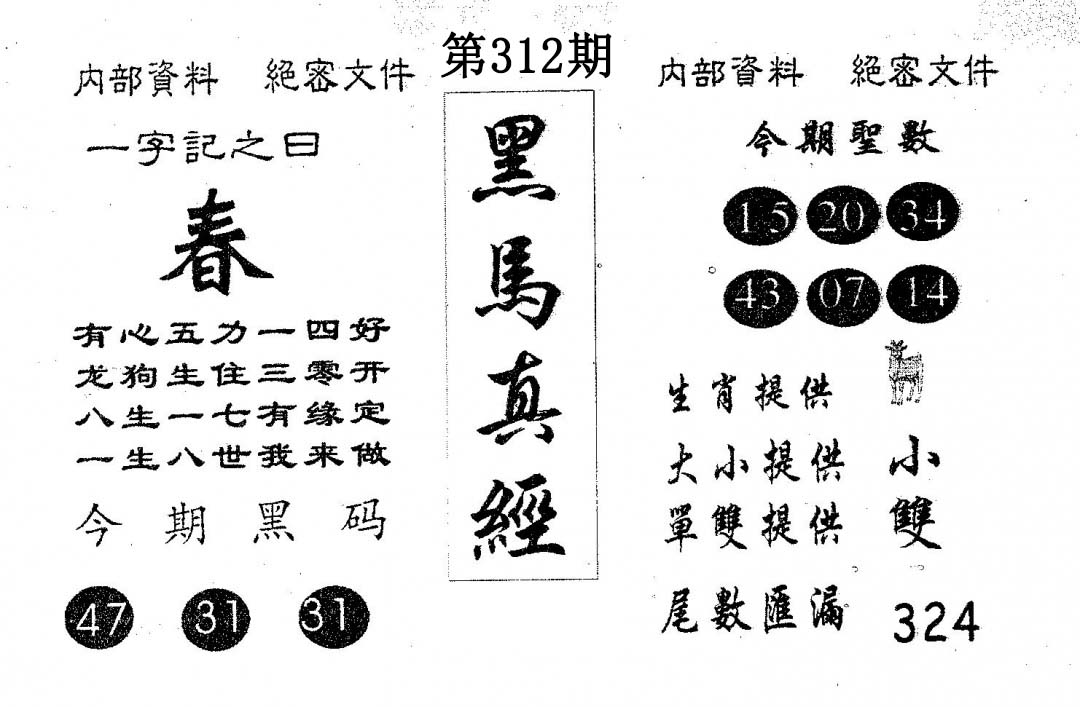 第312期
内部資料 絕密文件
一字記之曰
春
有心五力一四好
龙狗生住三零开
八生一七有缘定
一生八世我来做
今期黑码
47 31 31
黑馬真經
内部資料 絕密文件
今期聖數
15 20 34
43 07 14
生肖提供
大小提供 小
單雙提供 雙
尾數匯漏 324